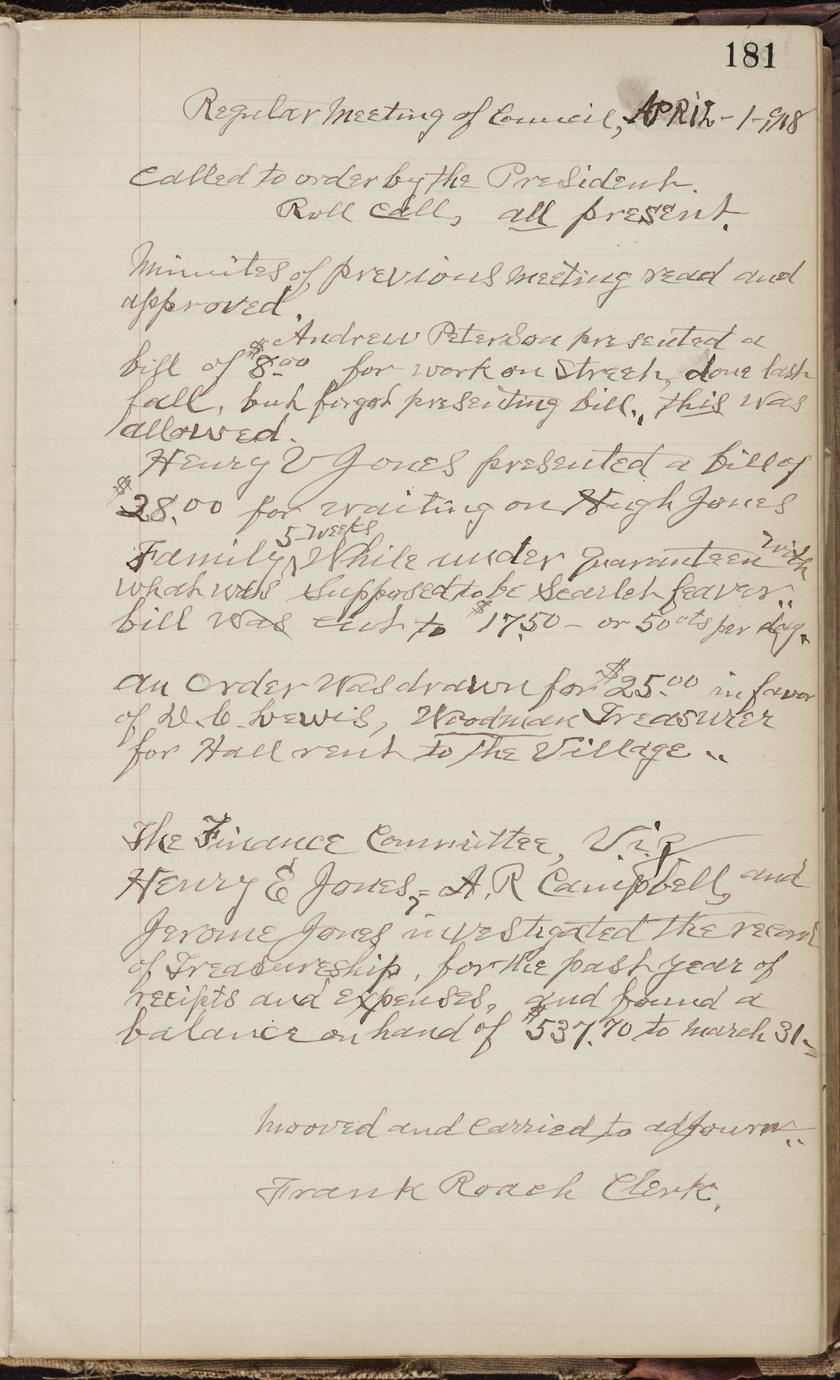 181
Regular Meeting of Council, APRIL-1-1918
Called to order by the President.
Roll Call, all present.
Minuites of previous meeting read and
approved.
Andrew Peterson presented a
bill of $8.00 for work on Street, done last
fall, but forgot presenting bill., this was
allowed.
Henry V Jones presented a bill of
$28.00 for waiting on Hugh Jones
5 weeks
Family, While under quaranteen with
what was supposed to be Scarlet feaver..
bill was cut to $17.50 - or 50cts per day.
an Order Was drawn for $25.00 in favor
of D. C. Lewis, Woodman Treasurer
for Hall rent to the Village ..
The Finance Committee, Viz
Henry E Jones, - A. R Campbell, and
Jerome Jones investigated the record
of Treasureship, for the past year of
reciepts and expenses, and found a
balance on hand of $537.70 to march 31.
mooved and carried to adjourn..
Frank Roach Clerk.